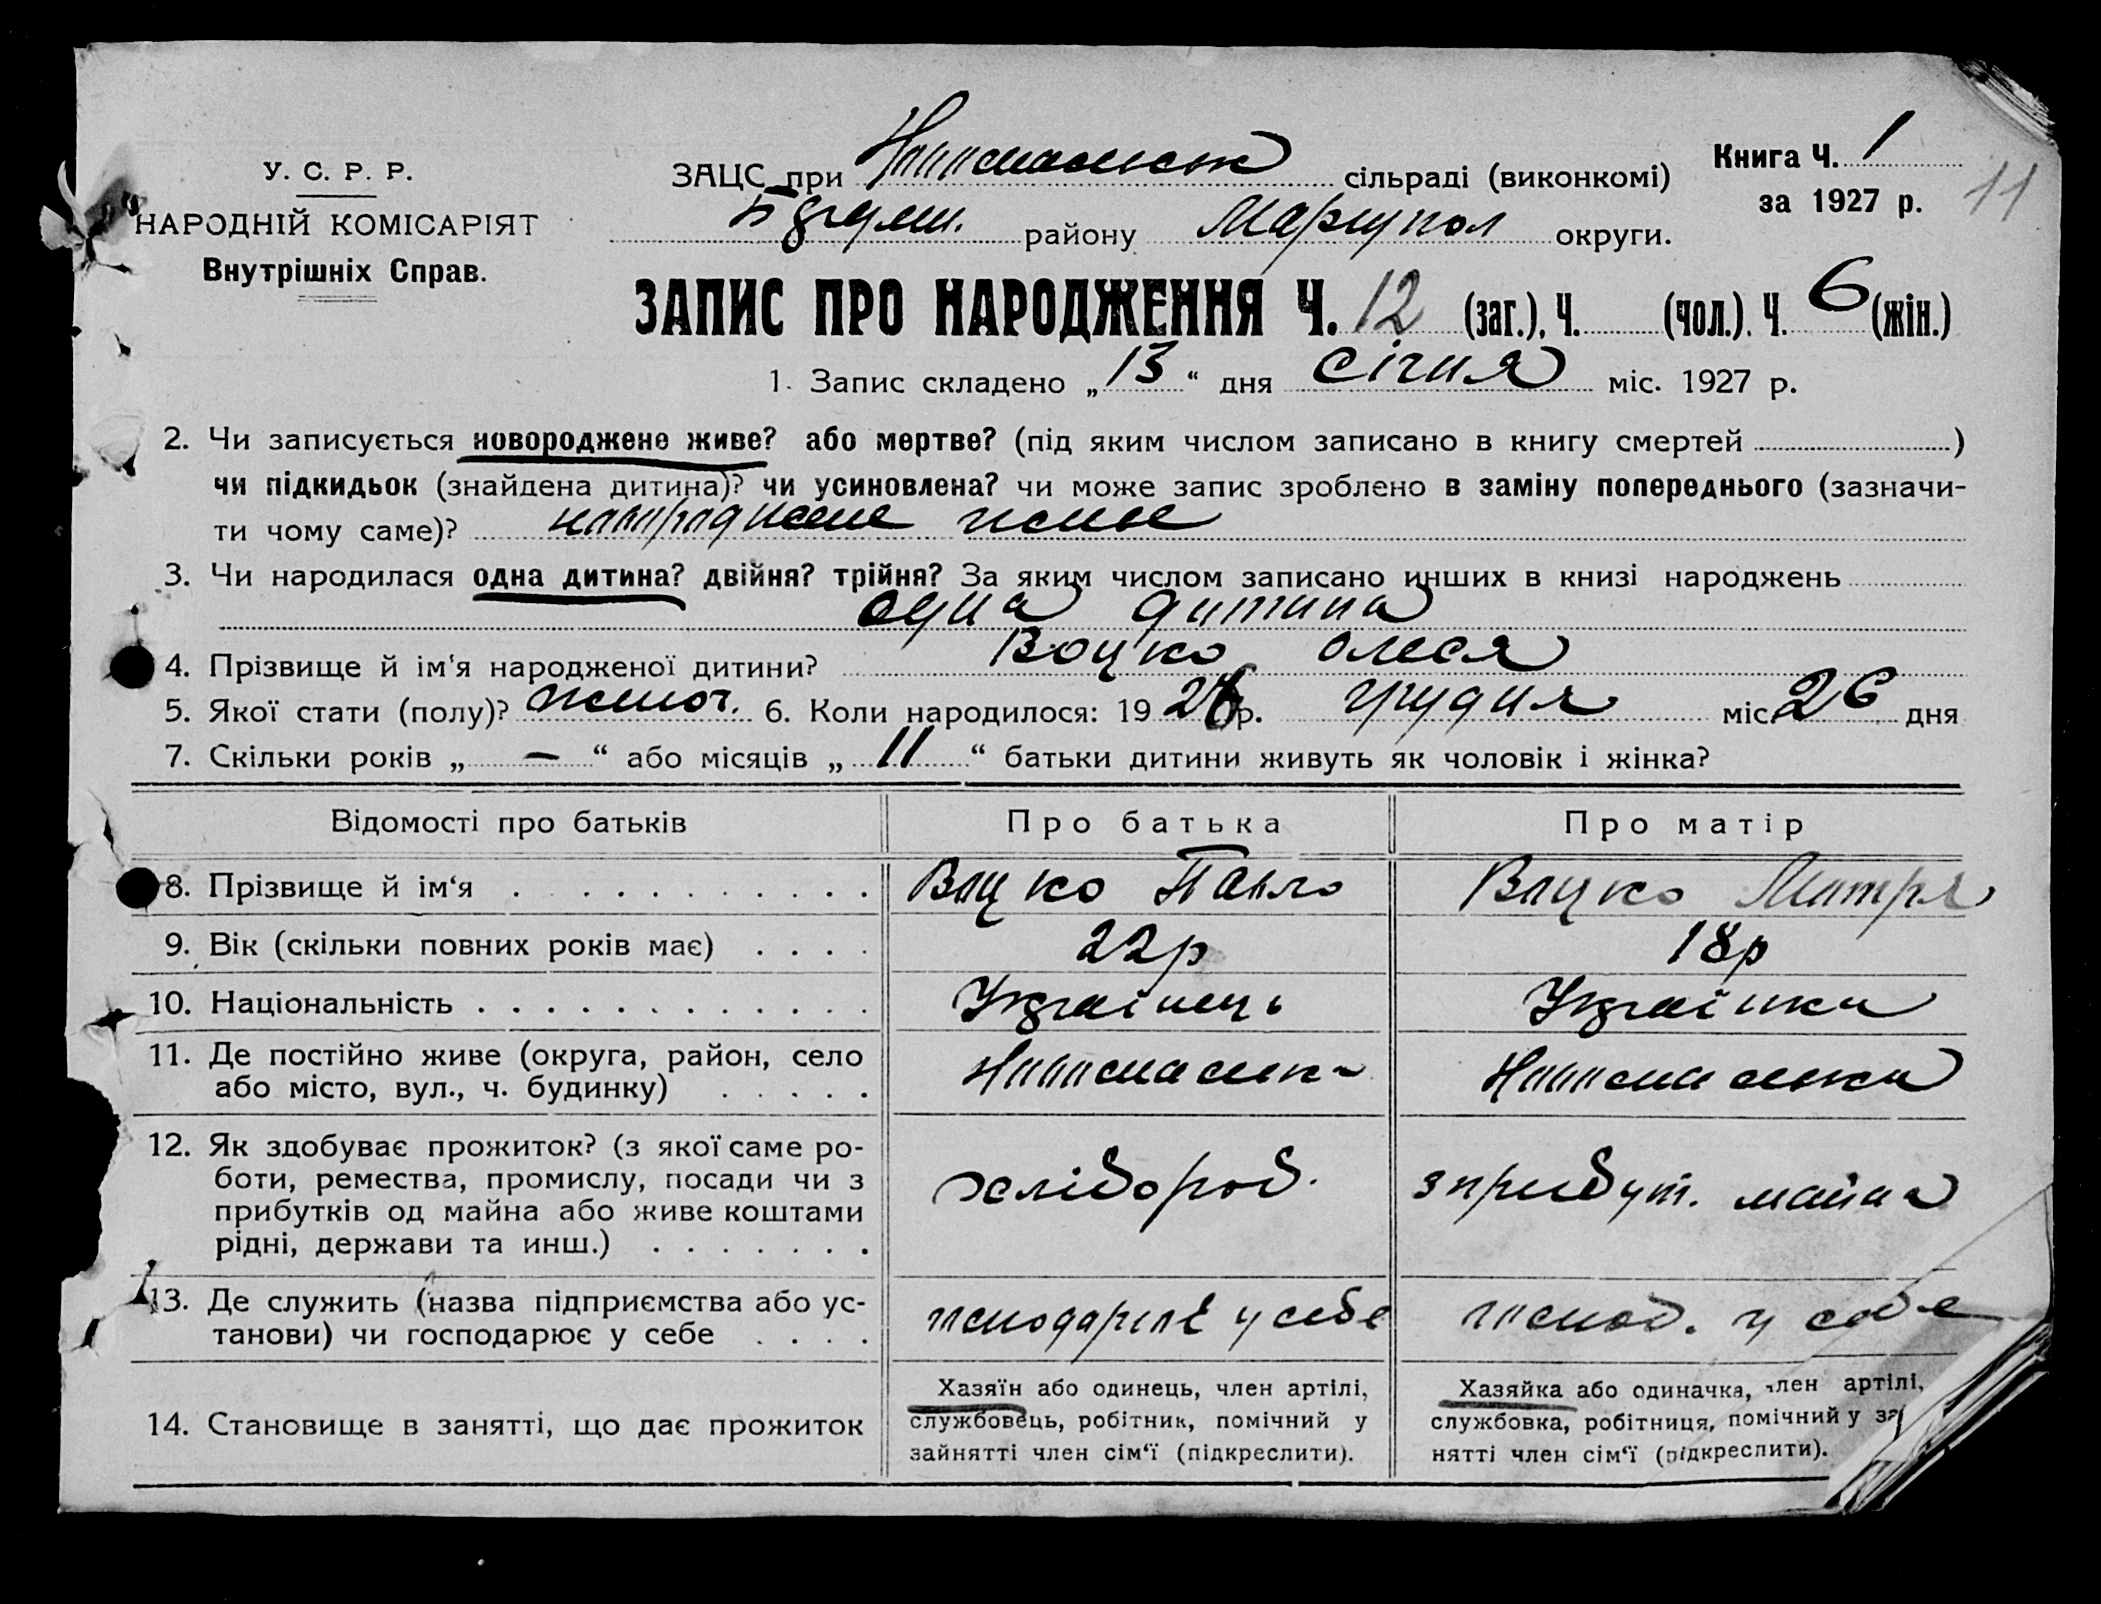 У. С. Р. Р.
НАРОДНІЙ КОМІСАРІЯТ
Внутрішніх Справ.
ЗАЦС при Новоспаськ сільраді (виконкомі)
району Маріупол округи.
Книга Ч. 1
за 1927 р.
11
ЗАПИС ПРО НАРОДЖЕННЯ Ч. 12 (заг.), Ч. (чол.). Ч. 6 (жін.)
1. Запис складено „ 13 “ дня січня міс. 1927 р.
2. Чи записується новороджене живе? або мертве? (під яким числом записано в книгу смертей )
чи підкидьок (знайдена дитина)? чи усиновлена? чи може запис зроблено в заміну попереднього (зазначи-
ти чому саме)? новороджене живе
3. Чи народилася одна дитина? двійня? трійня? За яким числом записано инших в книзі народжень
одна дитина
4. Прізвище й ім‘я народженої дитини? Воцко Олеся
5. Якої стати (полу)? жіноч. 6. Коли народилося: 1926 р. грудня міс. 26 дня
7. Скільки років „ — “ або місяців „ 11 “ батьки дитини живуть як чоловік і жінка?
Відомості про батьків Про батька Про матір
8. Прізвище й ім‘я Воцко Павло Воцко Мотря
9. Вік (скільки повних років має) 22р 18р
10. Національність Українець Українка
11. Де постійно живе (округа, район, село
або місто, вул., ч. будинку) Новоспаська Новоспаська
12. Як здобуває прожиток? (з якої саме ро-
боти, ремества, промислу, посади чи з
прибутків од майна або живе коштами
рідні, держави та инш.) хлібороб. з прибут. майна
13. Де служить (назва підприємства або ус-
танови) чи господарює у себе господарює у себе господ. у себе
14. Становище в занятті, що дає прожиток
Хазяїн або одинець, член артілі,
службовець, робітник, помічний у
зайнятті член сім‘ї (підкреслити).
Хазяйка або одиначка, член артілі,
службовка, робітниця, помічний у за
нятті член сім‘ї (підкреслити).